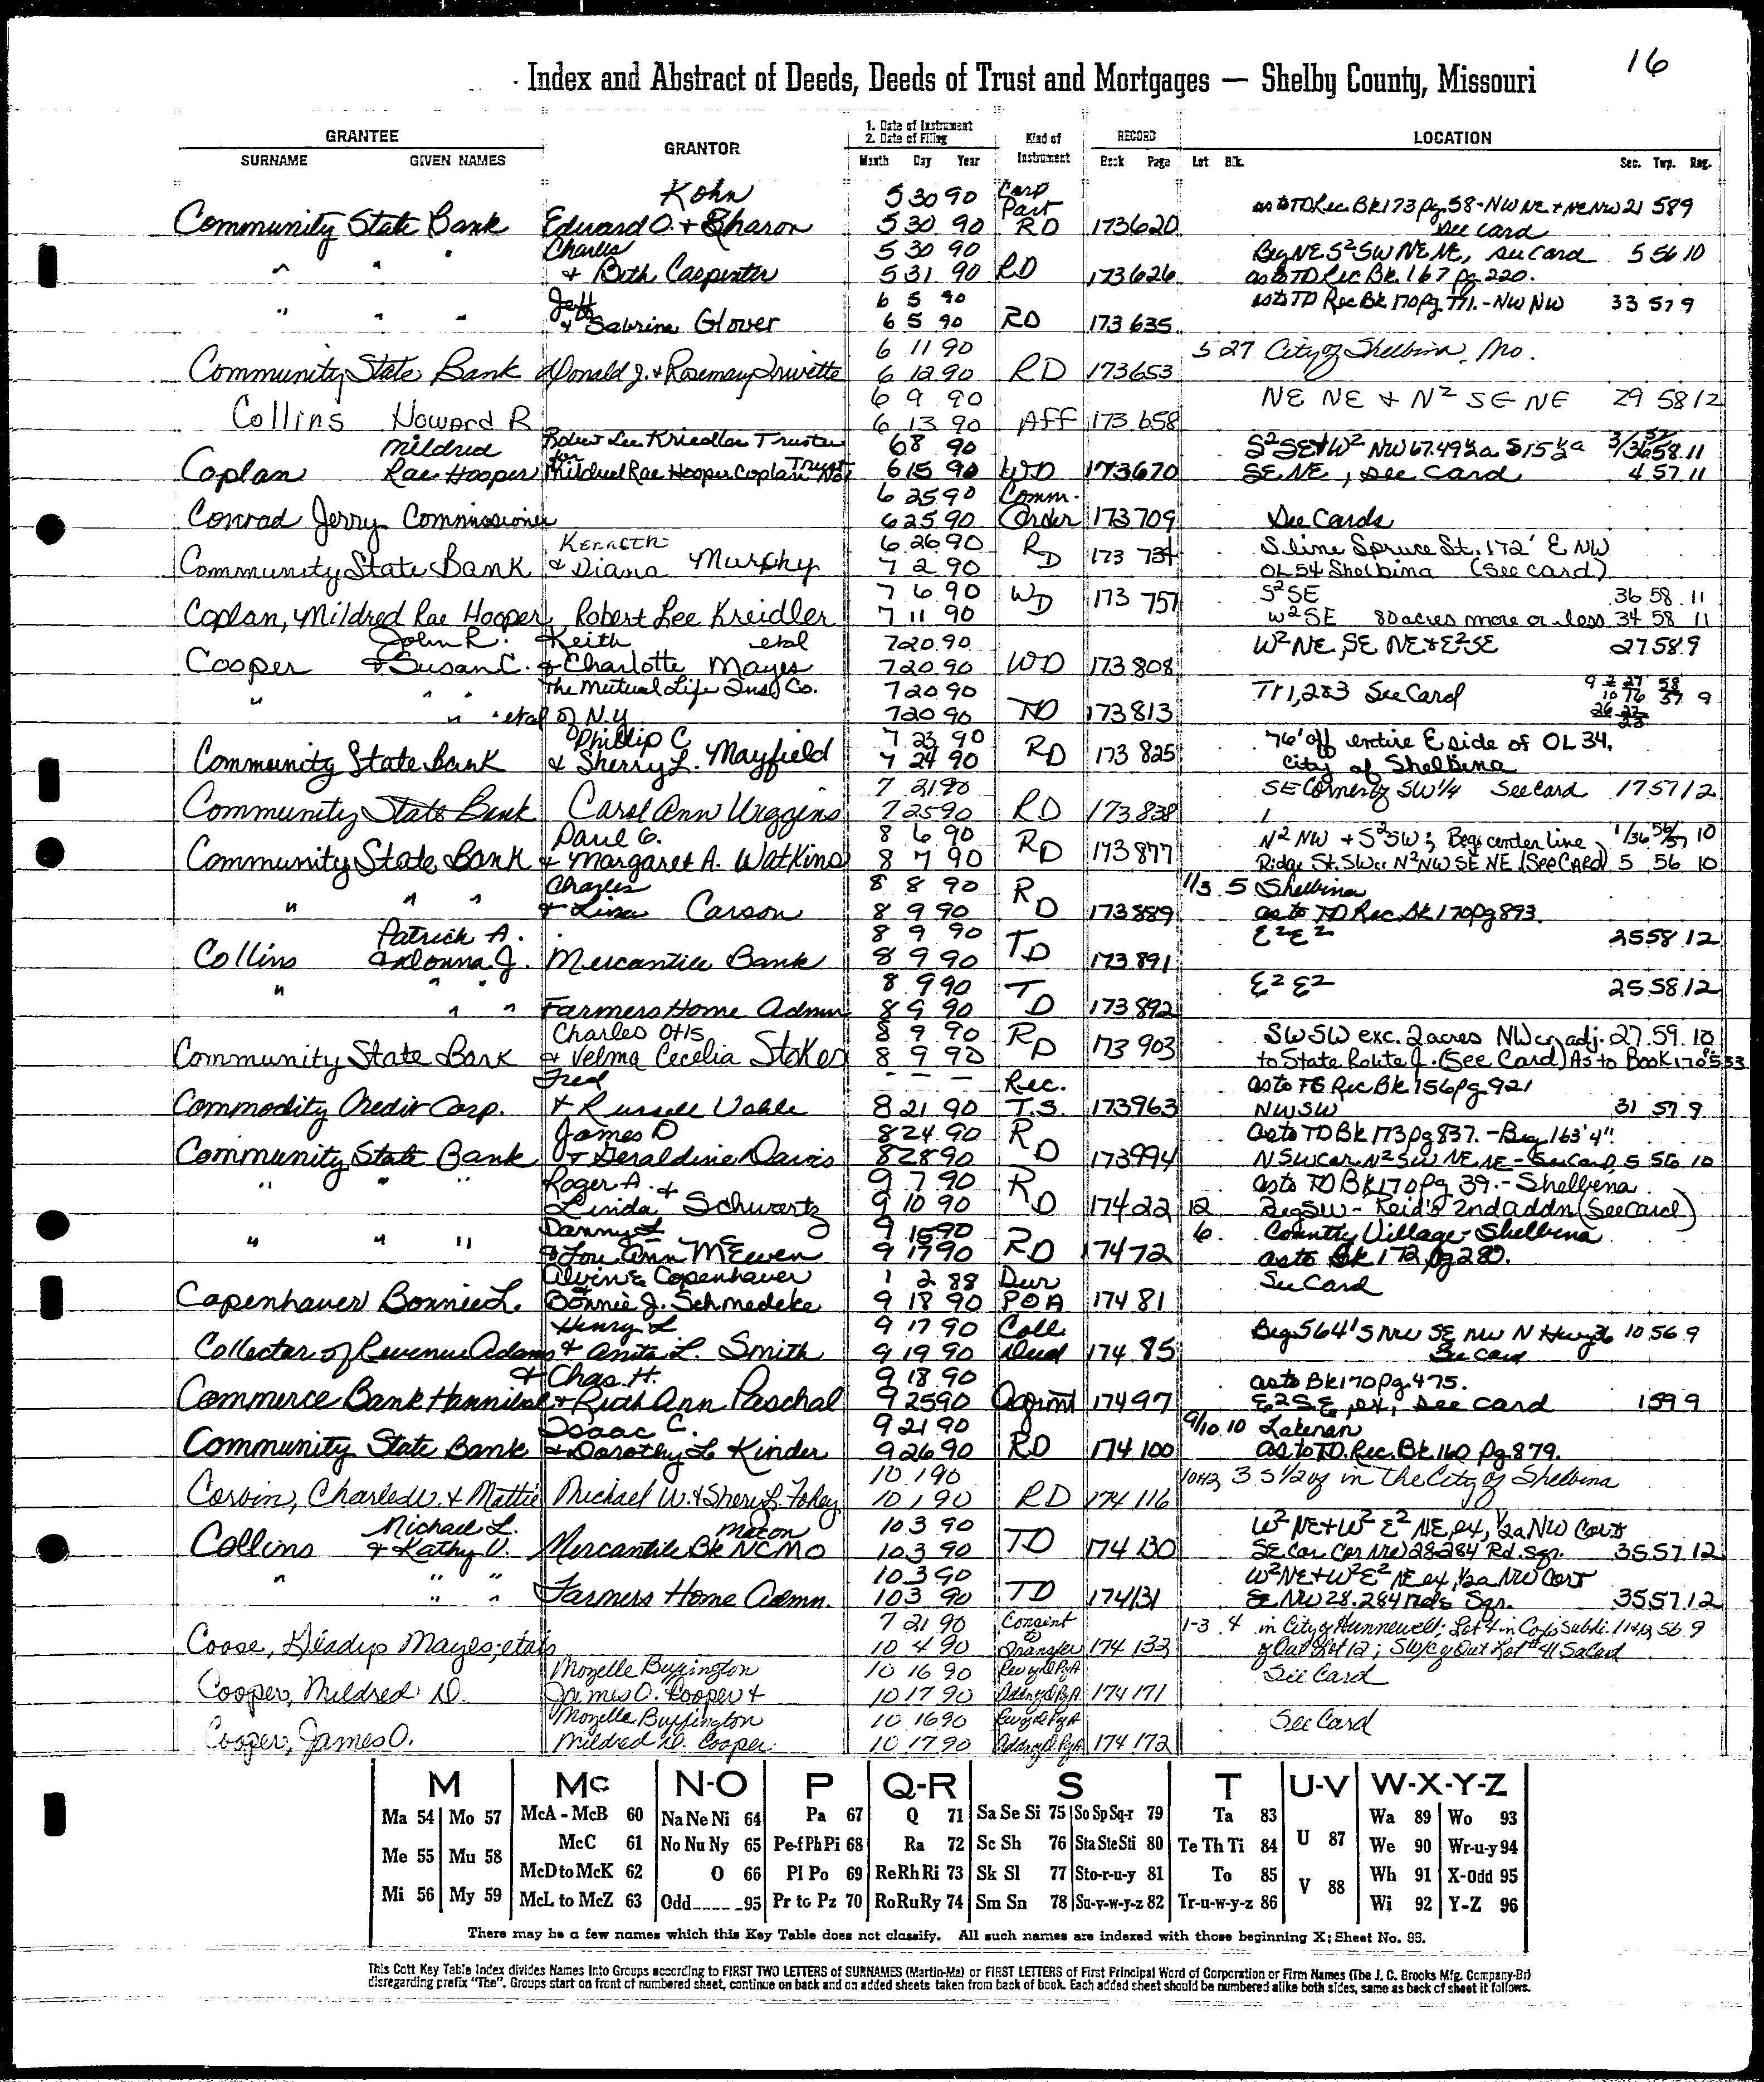 16
Index and Abstract of Deeds, Deeds of Trust and Mortgages — Shelby County, Missouri
GRANTEE GRANTOR 1. Date of Instrument 2. Date of Filing Kind of Instrument RECORD LOCATION
SURNAME GIVEN NAMES Month Day Year Book Page Lot Blk. Sec. Twp. Rng.
Kohn 5 30 90 Corp Part as to TD Rec Bk 173 Pg 58 - NW NE + NE NW 21 58 9
Community State Bank Edward O. + Sharon 5 30 90 RD 173 620 See card
Charles 5 30 90 Beg NE S² SW NE NE, see Card 5 56 10
" " " & Beth Carpenter 5 31 90 RD 173 626 as to TD Rec Bk. 167 pg 220.
Jeff 6 5 90 as to TD Rec Bk 170 pg 771. - NW NW 33 57 9
" " " & Sabrina Glover 6 5 90 RD 173 635
6 11 90 5 27 City of Shelbina, Mo.
Community State Bank Donald J. + Rosemary Trivette 6 12 90 RD 173 653
6 9 90 NE NE & N² SE NE 29 58 12
Collins Howard R 6 13 90 Aff 173 658
Mildred Robert Lee Kriedler Trustee 6 8 90 S² SE + W² NW 67.49
Coplan Rae Hooper for Mildred Rae Hooper Coplan Trust No 6 15 90 WD 173 670 SE NE, see Card 4 57 11
6 25 90 Comm.
Conrad Jerry Commissioner 6 25 90 Order 173 709 See Cards
Kenneth 6 26 90 RD S line Spruce St. 172' E NW
Community State Bank & Diana Murphy 7 2 90 173 734 OL 54 Shelbina (See card)
7 6 90 WD S² SE 36 58 11
Coplan, Mildred Rae Hooper Robert Lee Kreidler 7 11 90 173 757 W² SE 80 acres more or less 34 58 11
John R. Keith etal 7 20 90 W² NE, SE NE & E² SE 27 58 9
Cooper & Susan C. & Charlotte Mayes 7 20 90 WD 173 808
The Mutual Life Ins Co. 7 20 90 Tr 1, 2 & 3 See Card
" " " etal of N.Y. 7 20 90 TD 173 813
Phillip C 7 23 90 76' off entire E side of OL 34,
Community State Bank & Sherry L. Mayfield 7 24 90 RD 173 825 City of Shelbina
7 21 90 SE Corner of SW 1/4 See Card 17 57 12
Community State Bank Carol Ann Wiggins 7 25 90 RD 173 838
Paul G. 8 6 90 N² NW + S² SW; Beg center line 1/36 56/57 10
Community State Bank & Margaret A. Watkins 8 7 90 RD 173 877 Ridge St. SW N² NW SE NE (See CARD) 5 56 10
Charles 8 8 90 1/3 5 Shelbina
" " " & Lisa Carson 8 9 90 RD 173 889 as to TD Rec. Bk 170 pg 893.
Patrick A. 8 9 90 E² E² 25 58 12
Collins & Donna J. Mercantile Bank 8 9 90 TD 173 891
8 9 90 E² E² 25 58 12
" " " Farmers Home Admn 8 9 90 TD 173 892
Charles Otis 8 9 90 SW SW exc. 2 acres NW cr adj. 27. 59. 10
Community State Bank & Velma Cecelia Stokes 8 9 90 RD 173 903 to State Route J. (See Card) As to Book 170 533
Fred — — — Rec. as to FS Rec Bk 156 pg 921
Commodity Credit Corp. & Russell Vahle 8 21 90 T.S. 173 963 NW SW 31 57 9
James D 8 24 90 as to TD Bk 173 pg 837. - Beg 163' 4"
Community State Bank & Geraldine Davis 8 28 90 RD 173 994 N SW cor N² SW NE NE - See Card, 5 56 10
Roger A. & 9 7 90 as to TD Bk 170 pg 39. - Shelbina
" " " Linda Schwartz 9 10 90 RD 174 22 12 Beg SW - Reid's 2nd addn (See Card)
Danny L 9 15 90 6 Country Village - Shelbina
" " " & Lou Ann McEwen 9 17 90 RD 174 72 as to Bk 172 pg 280.
Alvin E Copenhaver 1 2 88 Dur See Card
Copenhaver Bonnie L. Bonnie J. Schmedeke 9 18 90 POA 174 81
Henry L 9 17 90 Coll. Beg 564' S NW SE NW N Hwy 36 10 56 9
Collector of Revenue Adams & Anita L. Smith 9 19 90 Deed 174 85 See card
& Chas. H. 9 18 90 as to Bk 170 pg. 475.
Commerce Bank Hannibal & Ruth Ann Paschal 9 25 90 Agrmt 174 97 E² SE, ex, see card 1 59 9
Isaac C. 9 21 90 9/10 10 Lakenan
Community State Bank & Dorothy L Kinder 9 26 90 RD 174 100 as to TD. Rec. Bk 160 pg 879.
10 1 90 3 S 1/2 of in the City of Shelbina
Corvin, Charles W. & Mattie Michael W. & Sheryl L. Fohey 10 1 90 RD 174 116
Michael L. Macon 10 3 90 W² NE + W² E² NE, ex, 1/2 a NW
Collins & Kathy V. Mercantile Bk NCMO 10 3 90 TD 174 130 28.284 Rd. Sqr. 35 57 12
10 3 90 W² NE + W² E² NE ex, 1/2 a NW
" " " Farmers Home Admn. 10 3 90 TD 174 131 SE NW 28.284 rds Sqr. 35 57 12
7 21 90 Consent 1-3 4 in City of Hunnewell; Lot 4 in Cox's Subdi. 56 9
Coose, Gladys Mayes; etals 10 4 90 to Transfer 174 133 of Out Lot 12; SW/c of Out Lot #41
Mozelle Buffington 10 16 90 See Card
Cooper, Mildred D. James O. Cooper & 10 17 90 174 171
Mozelle Buffington 10 16 90 See Card
Cooper, James O. Mildred D. Cooper 10 17 90 174 172
M Mc N-O P Q-R S T U-V W-X-Y-Z
Ma 54 Mo 57 McA - McB 60 Na Ne Ni 64 Pa 67 Q 71 Sa Se Si 75 So Sp Sq-r 79 Ta 83 U 87 Wa 89 Wo 93
Me 55 Mu 58 McC 61 No Nu Ny 65 Pe-f Ph Pi 68 Ra 72 Sc Sh 76 Sta Ste Sti 80 Te Th Ti 84 We 90 Wr-u-y 94
McD to McK 62 O 66 Pl Po 69 Re Rh Ri 73 Sk Sl 77 Sto-r-u-y 81 To 85 V 88 Wh 91 X-Odd 95
Mi 56 My 59 McL to McZ 63 Odd 95 Pr to Pz 70 Ro Ru Ry 74 Sm Sn 78 Su-v-w-y-z 82 Tr-u-w-y-z 86 Wi 92 Y-Z 96
There may be a few names which this Key Table does not classify. All such names are indexed with those beginning X; Sheet No. 95.
This Cott Key Table Index divides Names Into Groups according to FIRST TWO LETTERS of SURNAMES (Martin-Ma) or FIRST LETTERS of First Principal Word of Corporation or Firm Names (The J. C. Brooks Mfg. Company-Br)
disregarding prefix "The". Groups start on front of numbered sheet, continue on back and on added sheets taken from back of book. Each added sheet should be numbered alike both sides, same as back of sheet it follows.